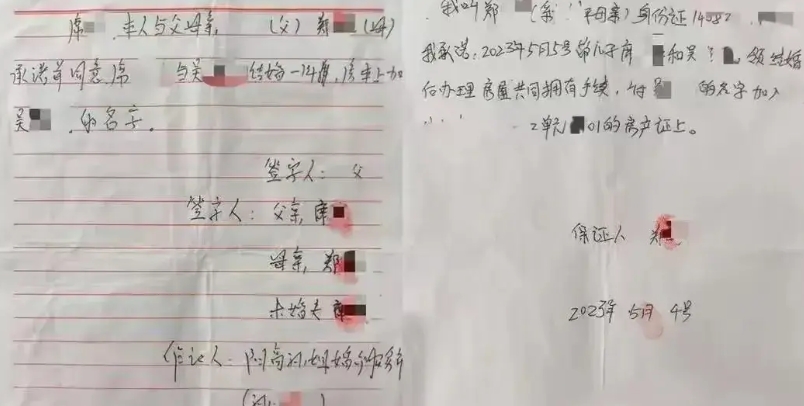 席 本人与父母亲 (父) 郑 (母)
承诺并同意席 与吴 结婚一年后,房本上加
吴 的名字.
签字人: 父
签字人: 父亲 席
母亲 郑
未婚夫 席
作证人:
我叫郑 母亲)身份证1408
我承诺:2023年5月5号 和吴 领结婚
后办理房屋共同拥有手续,付 的名字加入
2单元 01的房产证上。
保证人 郑
2023年 5月 4号